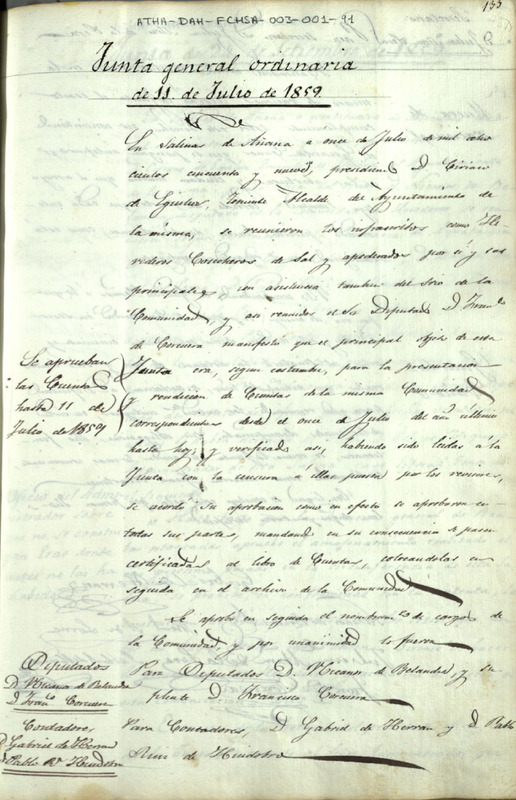 ATHA-DAH-FCHSA-003-001-91
133
Junta general ordinaria
de 11 de Julio de 1859
En Salinas de Añana a once de Julio de mil ocho
cientos cincuenta y nueve, presidiendo D. Ciriaco
de Eguiluz, Teniente Alcalde del Ayuntamiento de
la misma, se reunieron los infrascritos como He-
rederos Cosecheros de Sal y apoderados por sí y sus
principales, con asistencia tambien del Srio de la
Comunidad y asi reunidos el Sr Diputado D. Franco
de Corcuera manifestó que el principal objeto de esta
Junta era, segun costumbre, para la presentacion
y rendicion de Cuentas de la misma Comunidad
correspondientes desde el once de Julio del año último
hasta hoy, y verificado asi, habiendo sido leidas á la
Junta con la censura á ellas puesta por los revisores,
se acordó su aprobacion como en efecto se aprobaron en
todas sus partes, mandando en su consecuencia se pasen
certificadas al libro de Cuentas, colocandolas en
seguida en el archivo de la Comunidad
Se aprobó en seguida el nombramto de cargos de
la Comunidad, y por unanimidad lo fueron
Para Diputados D. Nicasio de Bolandia, y su
plente D. Francisco Corcuera
Para Contadores, D. Gabriel de Herran y D. Pablo
Ruiz de Huidobro
Se aprueban
las Cuentas
hasta 11 de
Julio de 1859
Diputados
D. Nicasio de Bolandia
D. Franco Corcuera
Contadores
D. Gabriel de Herran
D. Pablo Rz Huidobro